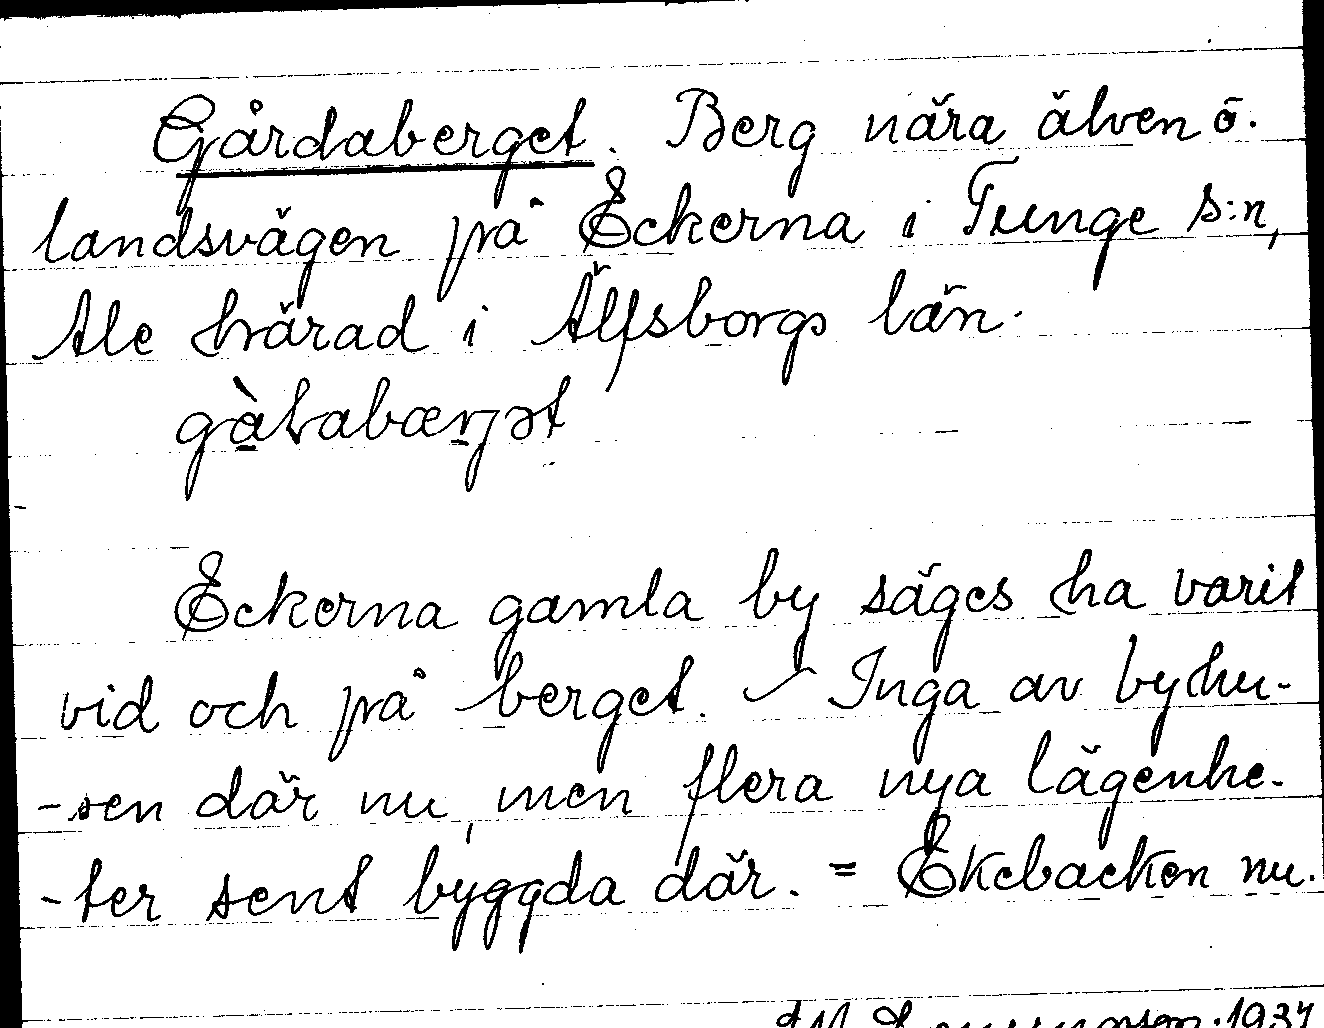 Gårdaberget. Berg nära älven ö.
landsvägen på Eckerna i Tunge s:n,
Ale härad i Älfsborgs län.
Eckerna gamla by säges ha varit
vid och på berget. – Inga av byhu-
-sen där nu, men flera nya lägenhe-
-ter sent byggda där. = Ekebacken nu.
1937